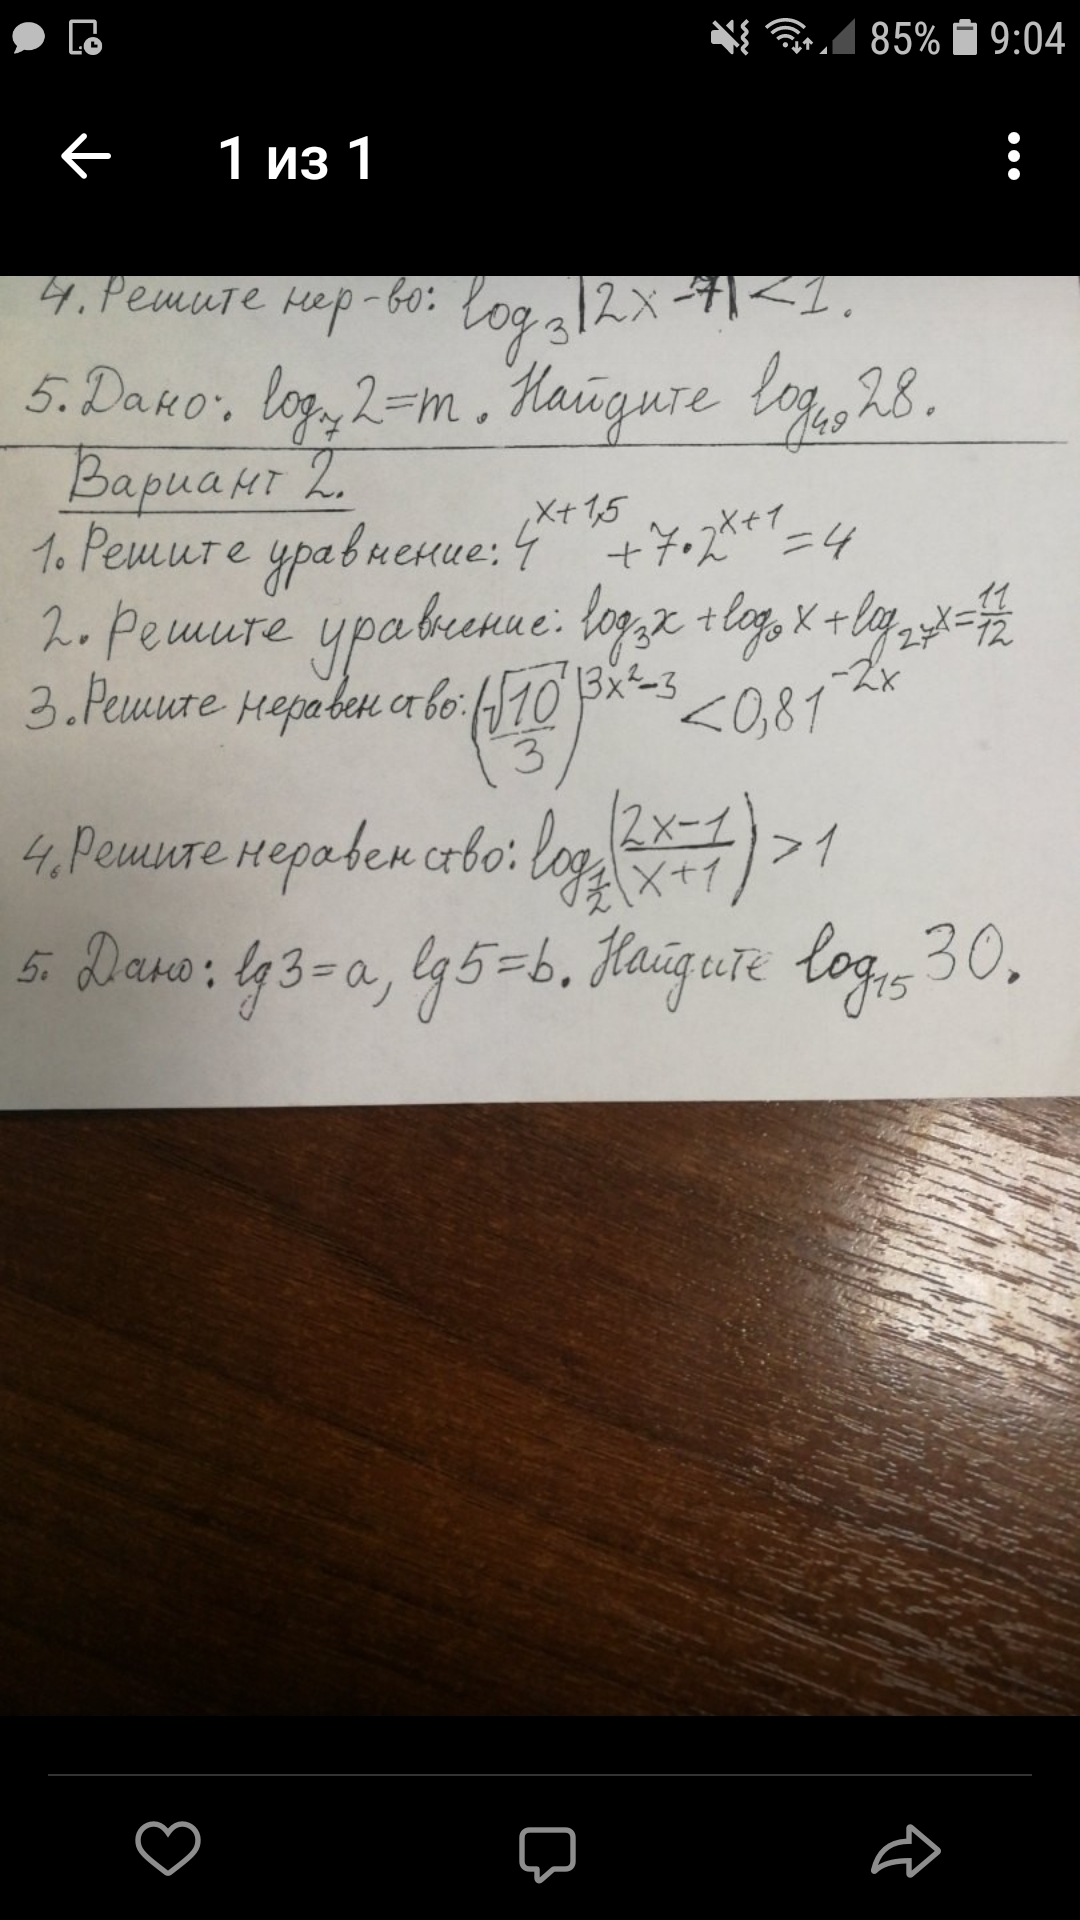 85% 9:04
1 из 1
4. Решите нер-во: log₃|2x-7|<1.
5. Дано: log₇2=m. Найдите log₄₉28.
Вариант 2.
1. Решите уравнение: 4^(x+1,5) + 7·2^(x+1) = 4
2. Решите уравнение: log₃x + log₉x + log₂₇x = 11/12
3. Решите неравенство: (√10/3)^(3x²-3) < 0,81^(-2x)
4. Решите неравенство: log_(1/2)((2x-1)/(x+1)) > 1
5. Дано: lg3=a, lg5=b. Найдите log₁₅30.